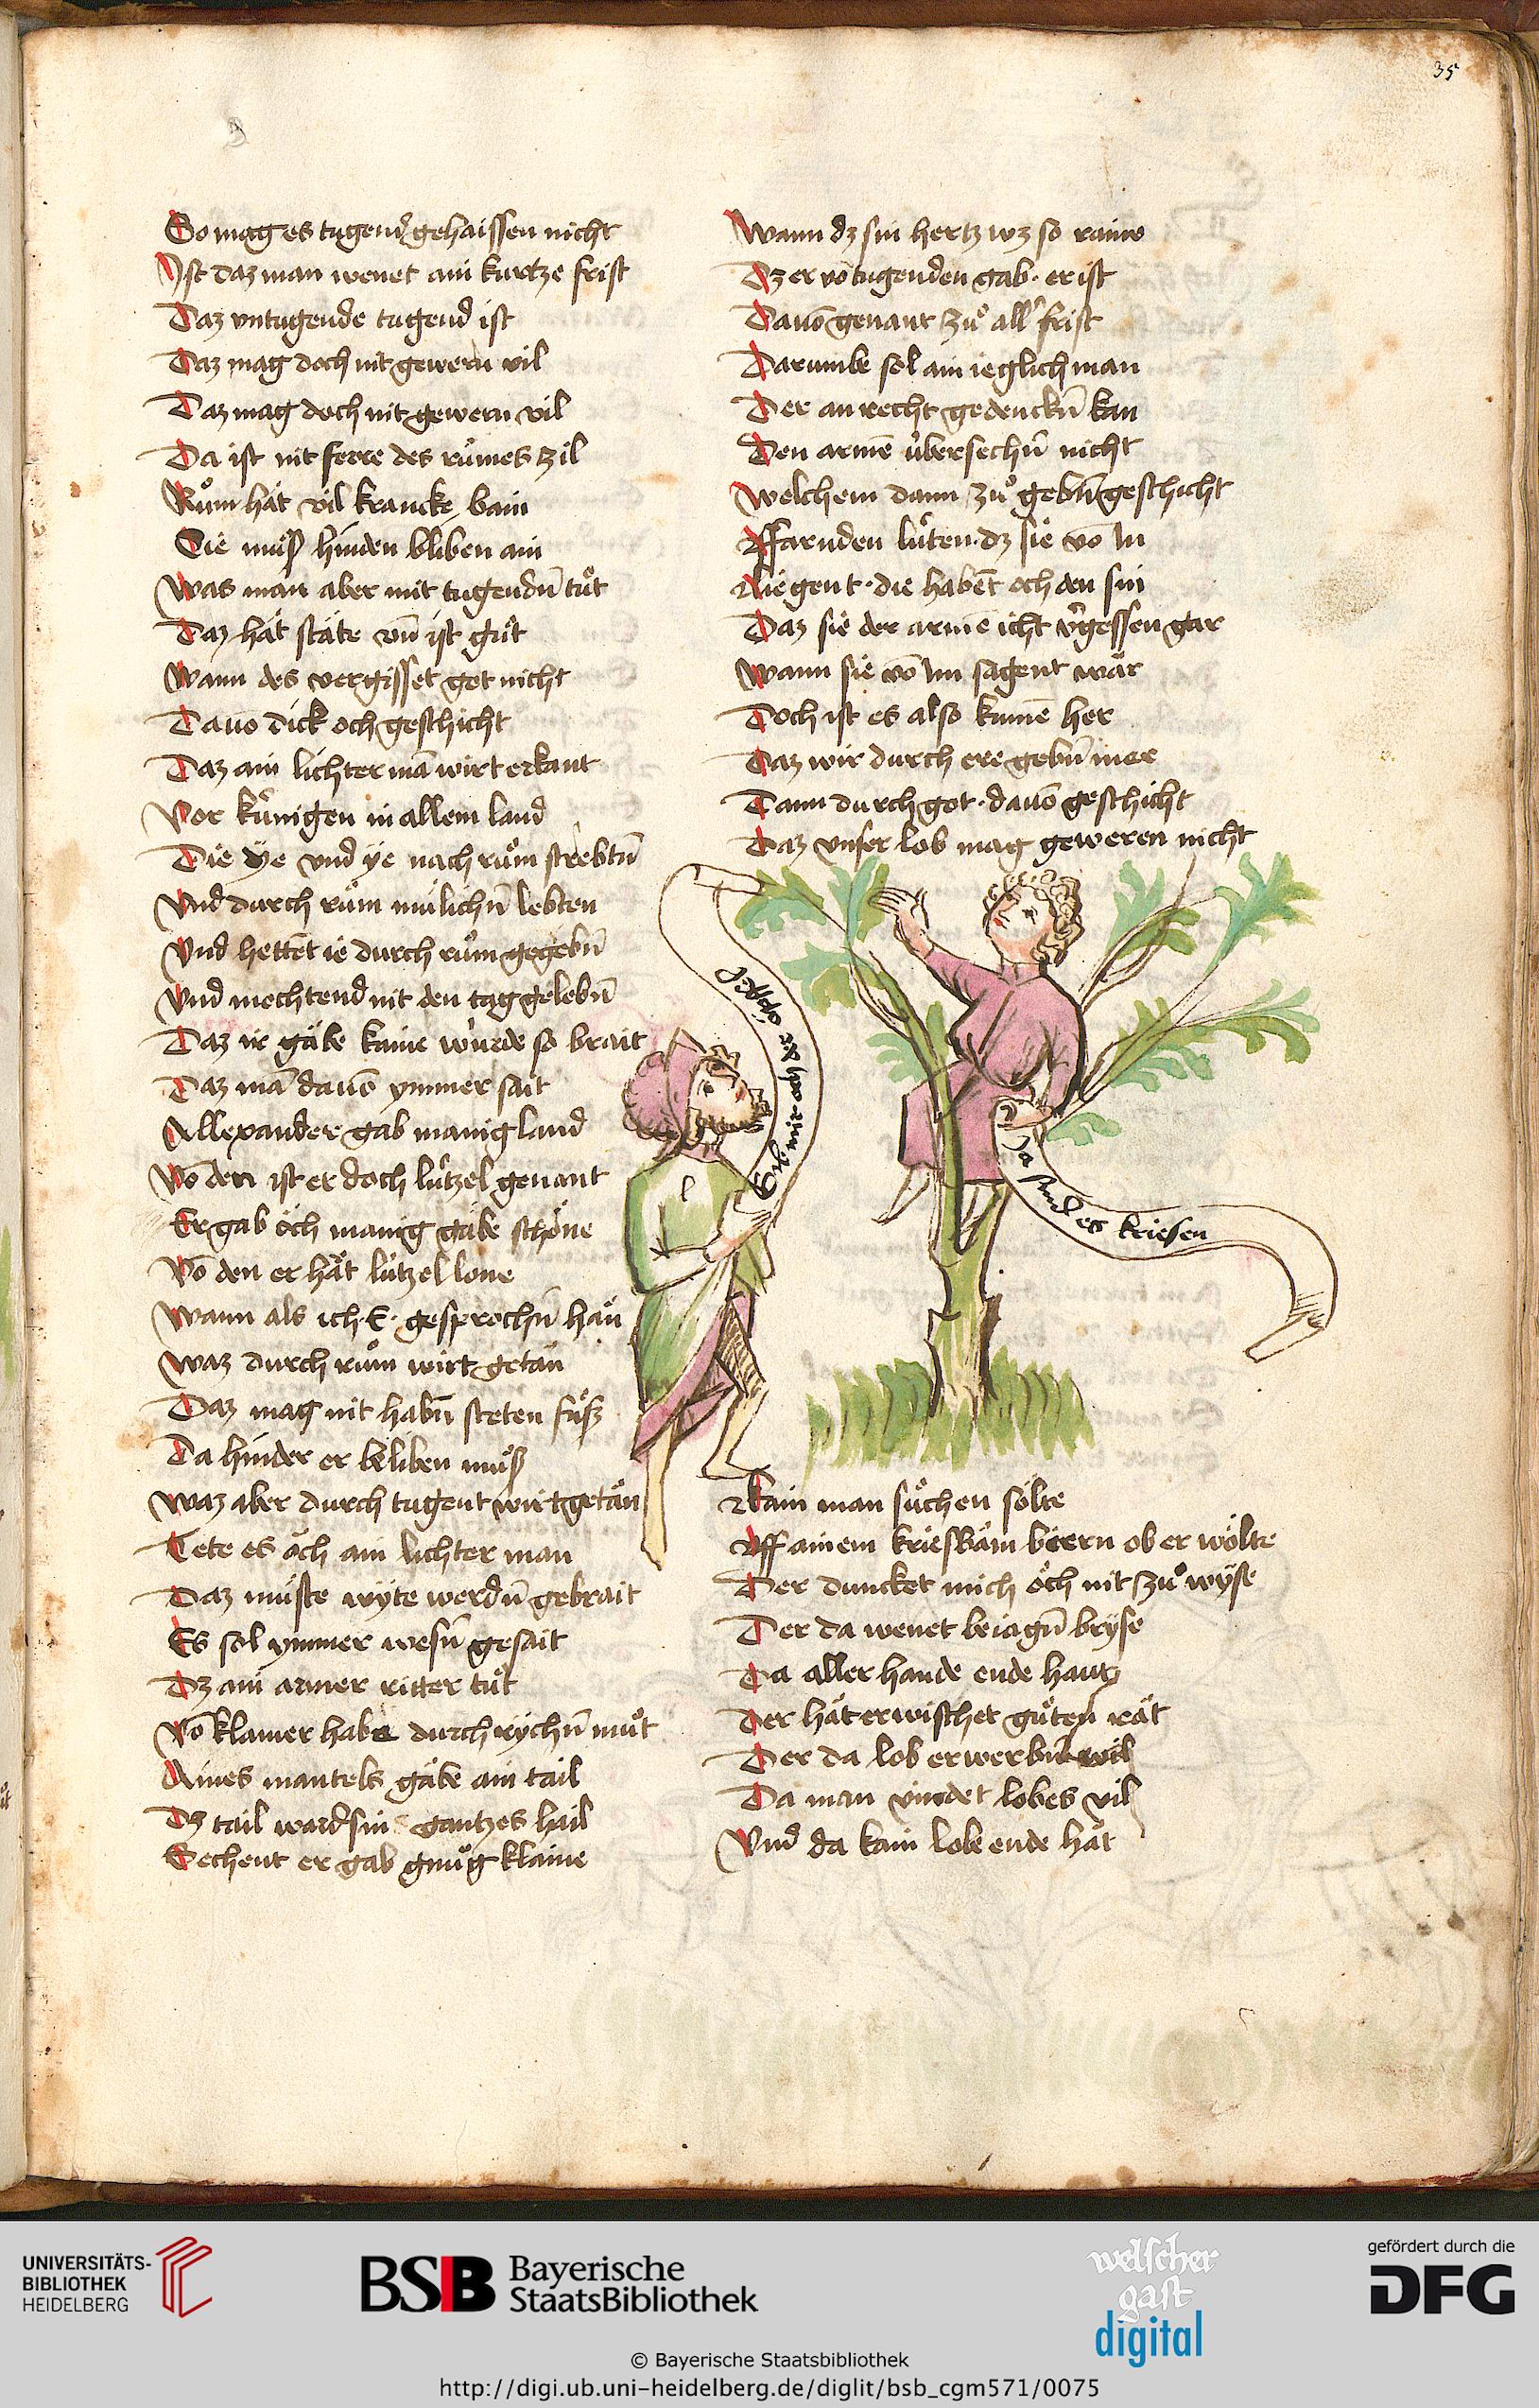 35
So mag es tugend gehaissen nicht
Ist daz man wenet ain kurtze frist
Daz vntugende tugend ist
Daz mag doch nit gewern vil
Daz mag doch nit gewern vil
Da ist nit ferre des ruͦmes zil
Ruͦm hat vil krancke bain
Sie muͦß hinden bliben ain
Was man aber mit tugendn̄ tuͦt
Daz hat stäte vn̄ ist guͦt
Wann des vergisset got nicht
Dauō dick och geschicht
Daz ain lichter mā wirt erkant
Vor kúnigen in allem land
Die ÿe vnd ÿe nach ruͦm strebtn̄
Vnd durch ruͦm mulichn̄ lebten
Vnd hettēt ie durch ruͦm gegebn̄
Vnd mochtend nit den tag gelebn̄
Daz ir gäbe kaine wúrde so brait
Daz mā dauō ymmer sait
Allexander gab manig land
Vō den ist er doch lútzel genant
Er gab öch manig gäbe schöne
Vō den er hät lútzel lone
Wann als ich · E · gesprochn̄ hän
Waz durch ruͦm wirt getän
Daz mag nit habn̄ steten fuͦß
Da hinder er beliben muͦß
Waz aber durch tugent wirt getän
Tete es öch ain lichter man
Daz muͤste wÿte werdn̄ gebrait
Es sol ymmer wesn̄ gesait
Dz ain armer ritter tuͦt
Vō klainer habe durch rÿchn̄ muͦt
Aines mantels gäbe ain tail
Dz tail ward sin gantzes hail
Sechent er gab gnuͦg klaine
Wann dz sin hertz wz so raine
Dz er vō tugenden gab · er ist
Dauō genant zuͦ all' frist
Darumbe sol ain ieglich man
Der an recht gedenckn̄ kan
Den armē úbersechn̄ nicht
Welchem dann zuͦ gebn̄ geschicht
Varnden lúten · dz sie vō Im
liegent · die habēt och den sin
Daz sie der armē icht v'gessen gar
Wann sie vō Im sagent wär
Doch ist es also kumē her
Daz wir durch ere gebn̄ mer
Dann durch got · dauō geschicht
Daz vnser lob mag geweren nicht
Gib mir och der öpffel
Ja sind es kriesen
Kain man suͤchen sölte
Vff ainem kriesbäm birern ob er wölte
Der duncket mich öch nit zuͦ wÿse
Der da wenet beiagn̄ brÿse
Da aller hande ende hant
Der hät erwischet guͦten rät
Der da lob erwerbn̄ wil
Da man vindet lobes vil
Vnd da kain lobe ende hät
UNIVERSITÄTS-
BIBLIOTHEK
HEIDELBERG
BSB Bayerische
StaatsBibliothek
welscher
gast
digital
gefördert durch die
DFG
© Bayerische Staatsbibliothek
http://digi.ub.uni-heidelberg.de/diglit/bsb_cgm571/0075